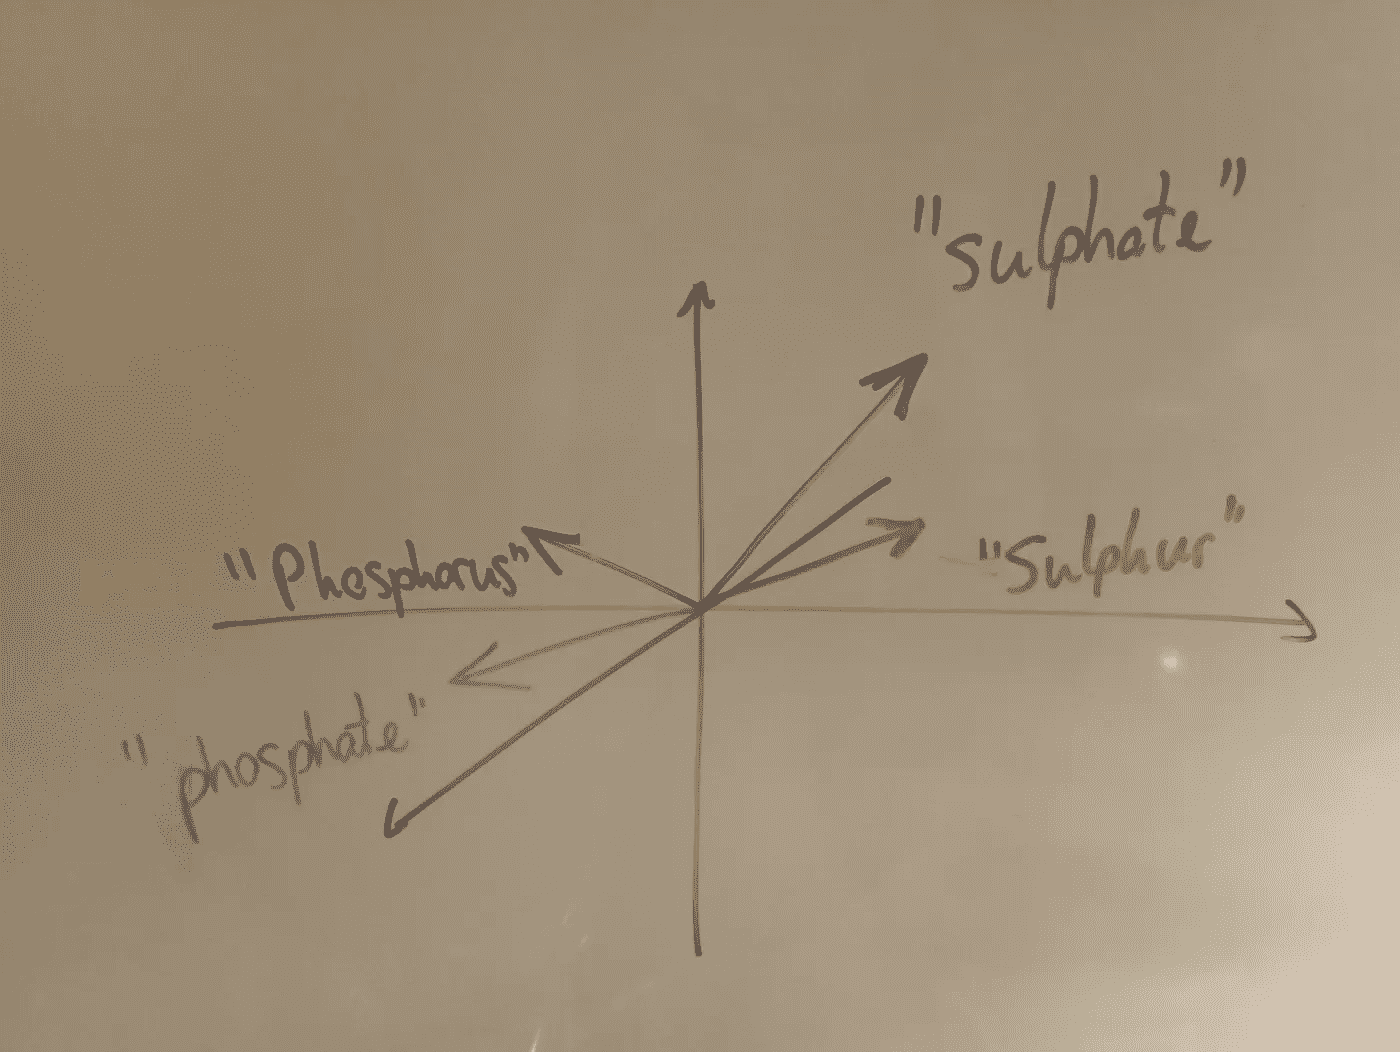 "sulphate"
"Phosphorus"
"Sulphur"
"phosphate"